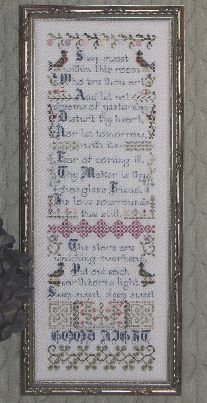 Sleep sweet
within this room
Who e'er thou art
And let not
dreams of yesterday
Disturb thy heart,
Nor let tomorrow
with its
Fear of coming ill.
Thy Maker is thy
changeless Friend,
His love surrounds
thee still.
The stars are
watching overhead,
Put out each
earthborne light,
Sleep sweet, sleep sweet
GOOD NIGHT